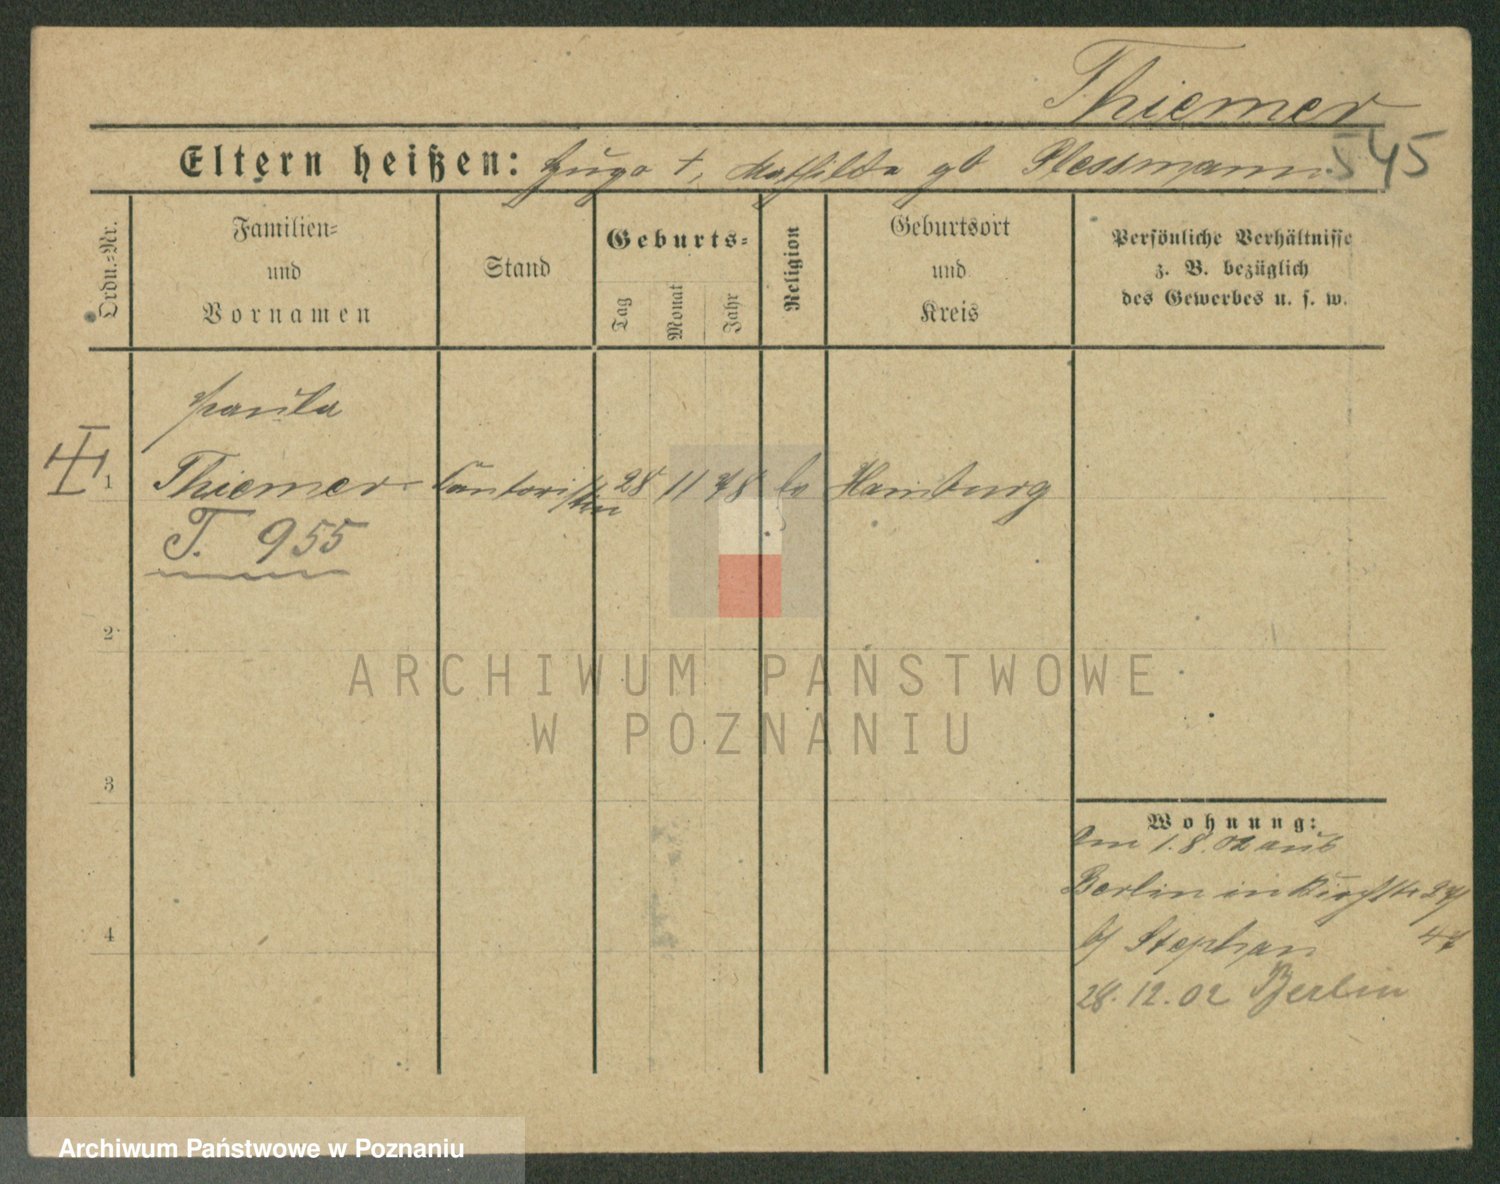 Thiemer
545
Eltern heißen: Hugo †, Mathilde gb Plessmann.
Ordn.-Nr.
Familien-
und
Vornamen
Stand
Geburts-
Tag
Monat
Jahr
Religion
Geburtsort
und
Kreis
Persönliche Verhältnisse
z. B. bezüglich
des Gewerbes u. s. w.
Paula
1 Thiemer Contoristin 28 11 78 Hamburg
T. 955
2
3
4
Wohnung:
Am 1.8.02 aus
Berlin in 24/
b/ Stephan 47
28.12.02 Berlin
ARCHIWUM PAŃSTWOWE
W POZNANIU
Archiwum Państwowe w Poznaniu